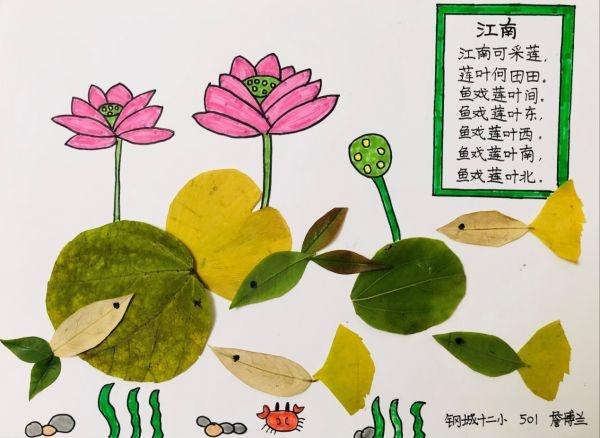 江南
江南可采莲，
莲叶何田田。
鱼戏莲叶间。
鱼戏莲叶东，
鱼戏莲叶西。
鱼戏莲叶南，
鱼戏莲叶北。
钢城十二小 501 詹博兰